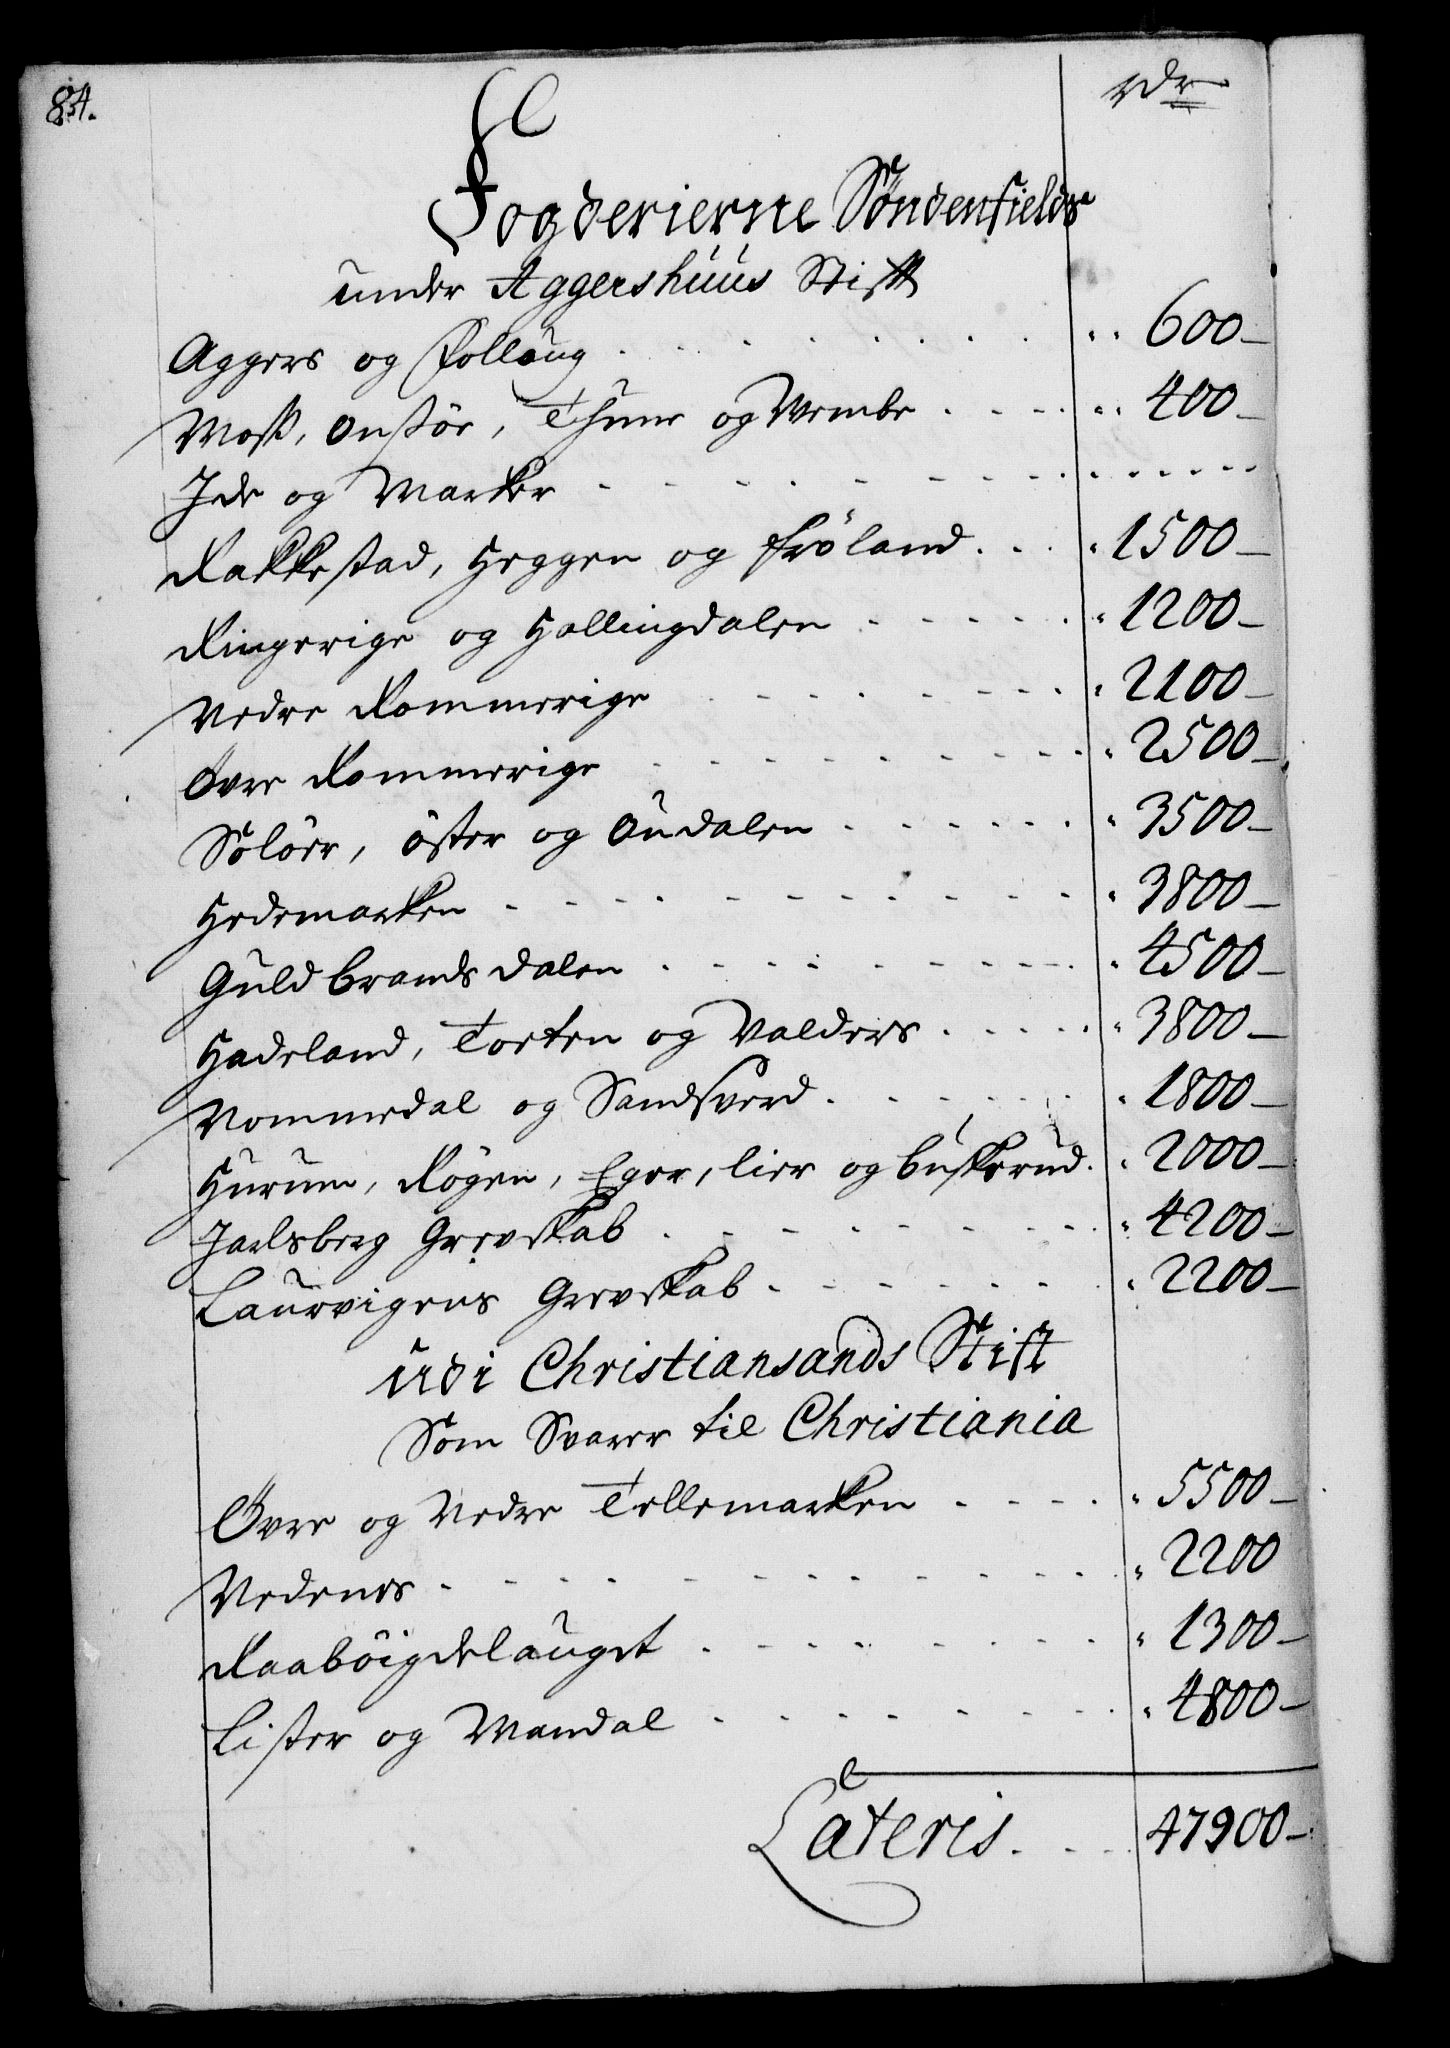 84.
rdr
Fogderierne Söndenfields
under Aggershuus Stift
Aggers og Follaug . . . . . . . 600 –
Moss, Onsöe, Thune og Wembe . . . . 400 –
Ide og Marker . . . . . . . . .
Rakkestad, Heggen og Fröland . . . 1500 –
Ringerige og Hallingdalen . . . . . 1200 –
Nedre Rommerige . . . . . . 2100 –
Övre Rommerige . . . . . . . 2500 –
Solöer, Öster og Oudalen . . . . . 3500 –
Hedemarken . . . . . . . . . 3800 –
Guldbrandsdalen . . . . . . . 4500 –
Hadeland, Toten og Valders . . . . . 3800 –
Nommedal og Sandsverd . . . . . 1800 –
Hurum, Rögen, Eger, Lier og Buskerud . 2000 –
Jarlsberg Grevskab . . . . . . . 4200 –
Laurvigens Grevskab . . . . . . 2200 –
udi Christiansands Stift
Som Svarer til Christiania
Övre og Nedre Tellemarken . . . . 5500 –
Nedenes . . . . . . . . . 2200
Raaböigdelauget . . . . . . . 1300 –
Lister og Mandal . . . . . . . 4800 –
Lateris . . . 47900 –